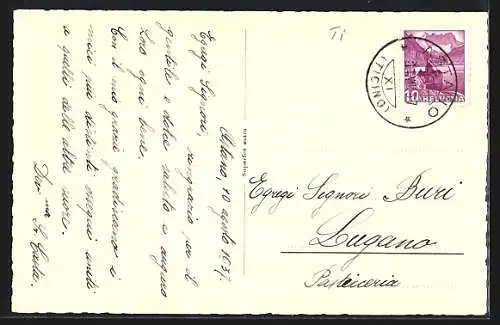 Astano, 10 agosto 1937.
Egregi Signori,
ringrazio per il
gentile e dolce saluto e auguro
loro ogni bene.
Con il mio grazie gradiscano i
miei più distinti ossequi uniti
a quelli delle altre suore.
Dev.ma Sr
Ti
ASTANO
(TICINO)
XI
10
HELVETIA
Egregi Signori Buri
Lugano
Pasticceria